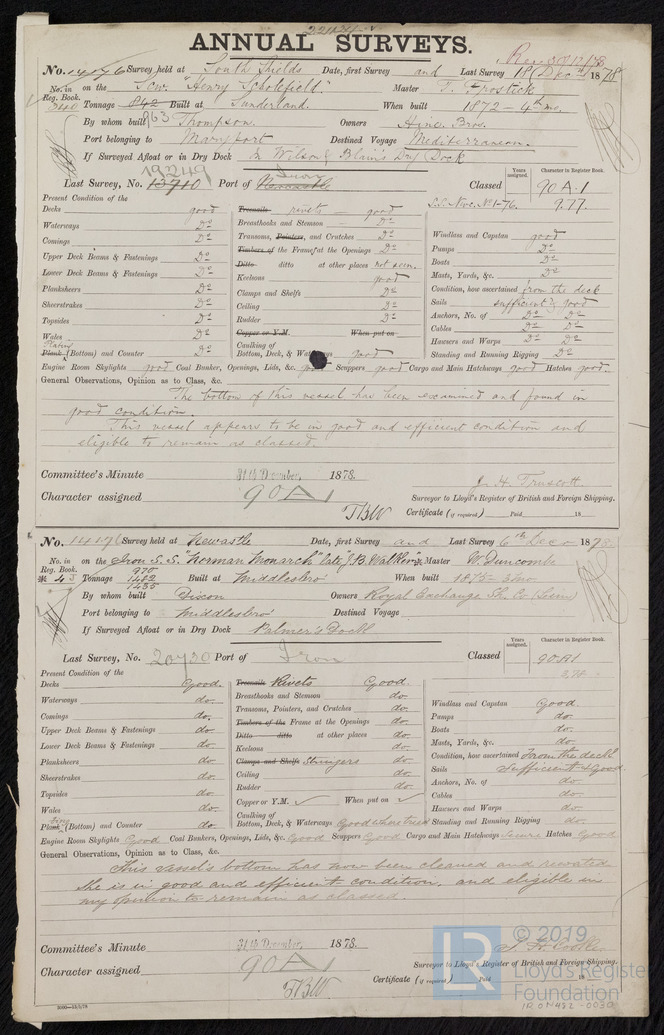 ANNUAL SURVEYS.
No. 14176 Survey held at South Shields Date, first Survey and Last Survey 18 Dec 1878
No. in on the Scw. "Henry Scholefield" Master T. Frostick
Reg. Book.
340 Tonnage 842 Built at Sunderland. When built 1872 - 4th mo.
863
By whom built Thompson. Owners Hine Bros.
Port belonging to Maryport Destined Voyage Mediterranean.
If Surveyed Afloat or in Dry Dock In Wilson & Blain's Dry Dock
19249 Iron
Last Survey, No. 13910 Port of Newcastle Classed
Years assigned.
Character in Register Book.
90 A.1
S.S. Nwc. No1-76. 9.77.
Present Condition of the
Decks good
Waterways Do
Comings Do
Upper Deck Beams & Fastenings Do
Lower Deck Beams & Fastenings Do
Planksheers Do
Sheerstrakes Do
Topsides Do
Wales Do
Plating
Plank (Bottom) and Counter Do
Treenails rivets good
Breasthooks and Stemson Do
Transoms, Pointers, and Crutches Do
Timbers of the Frames at the Openings Do
Ditto ditto at other places not seen.
Keelsons good
Clamps and Shelfs Do
Ceiling Do
Rudder Do
Copper or Y.M. When put on
Caulking of
Bottom, Deck, & Waterways good
Windlass and Capstan good
Pumps Do
Boats Do
Masts, Yards, &c. Do
Condition, how ascertained from the deck
Sails sufficient & good
Anchors, No. of Do Do
Cables Do Do
Hawsers and Warps Do Do
Standing and Running Rigging Do
Engine Room Skylights good Coal Bunker, Openings, Lids, &c. good Scuppers good Cargo and Main Hatchways good Hatches good.
General Observations, Opinion as to Class, &c.
The bottom of this vessel has been examined and found in
good condition.
This vessel appears to be in good and efficient condition and
eligible to remain as classed.
Committee's Minute 31st December 1878.
Character assigned 90A1
TBW
J. H. Truscott
Surveyor to Lloyd's Register of British and Foreign Shipping.
Certificate (if required) Paid 18
No. 14176 Survey held at Newcastle Date, first Survey and Last Survey 6th Dec 1878
No. in on the Iron S.S. "Norman Monarch" late "J. B. Walker" Master W. Duncomb
Reg. Book.
970
43 Tonnage 1482 Built at Middlesbro When built 1873
1435
By whom built Dixon Owners Royal Exchange Sh. Co (Lim)
Port belonging to Middlesbro Destined Voyage
If Surveyed Afloat or in Dry Dock Palmer's Dock
Last Survey, No. 20730 Port of Iron Classed
Years assigned.
Character in Register Book.
90A1
3,78
Present Condition of the
Decks Good.
Waterways do.
Comings do.
Upper Deck Beams & Fastenings do.
Lower Deck Beams & Fastenings do.
Planksheers do.
Sheerstrakes do.
Topsides do.
Wales do.
Iron
Plank (Bottom) and Counter do.
Treenails Rivets Good.
Breasthooks and Stemson do
Transoms, Pointers, and Crutches do.
Timbers of the Frame at the Openings do.
Ditto ditto at other places do.
Keelsons do.
Clamps and Shelfs Stringers do.
Ceiling do.
Rudder do.
Copper or Y.M. When put on
Caulking of
Bottom, Deck, & Waterways Good where tried
Windlass and Capstan Good.
Pumps do.
Boats do.
Masts, Yards, &c. do.
Condition, how ascertained From the deck
Sails Sufficient & Good.
Anchors, No. of do.
Cables do.
Hawsers and Warps do.
Standing and Running Rigging do.
Engine Room Skylights Good Coal Bunkers, Openings, Lids, &c. Good Scuppers Good Cargo and Main Hatchways Secure Hatches Good
General Observations, Opinion as to Class, &c.
This vessel's bottom has now been cleaned and recoated
She is in good and efficient condition, and eligible in
my opinion to remain as classed.
Committee's Minute 31st December 1878.
Character assigned 90A1
TBW
Surveyor to Lloyd's Register of British and Foreign Shipping.
Certificate (if required) Paid
LR
© 2019
Lloyd's Register
Foundation
IRON482-0030